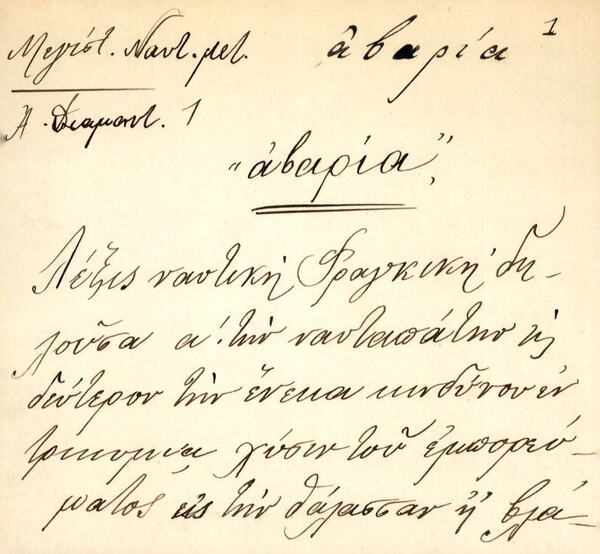 Μεγίστ. Ναυτ. μετ.
ἀβαρία 1
Ἀ. Διαμαντ. 1
"ἀβαρία",
Λέξις ναυτικὴ Φραγκικὴ δη-
λοῦσα α! τὴν ναυταπάτην ἢ
δεύτερον τὴν ἕνεκα κινδύνου ἐν
τρικυμίᾳ χύσιν τοῦ ἐμπορεύ-
ματος εἰς τὴν θάλασσαν ἢ βλά-